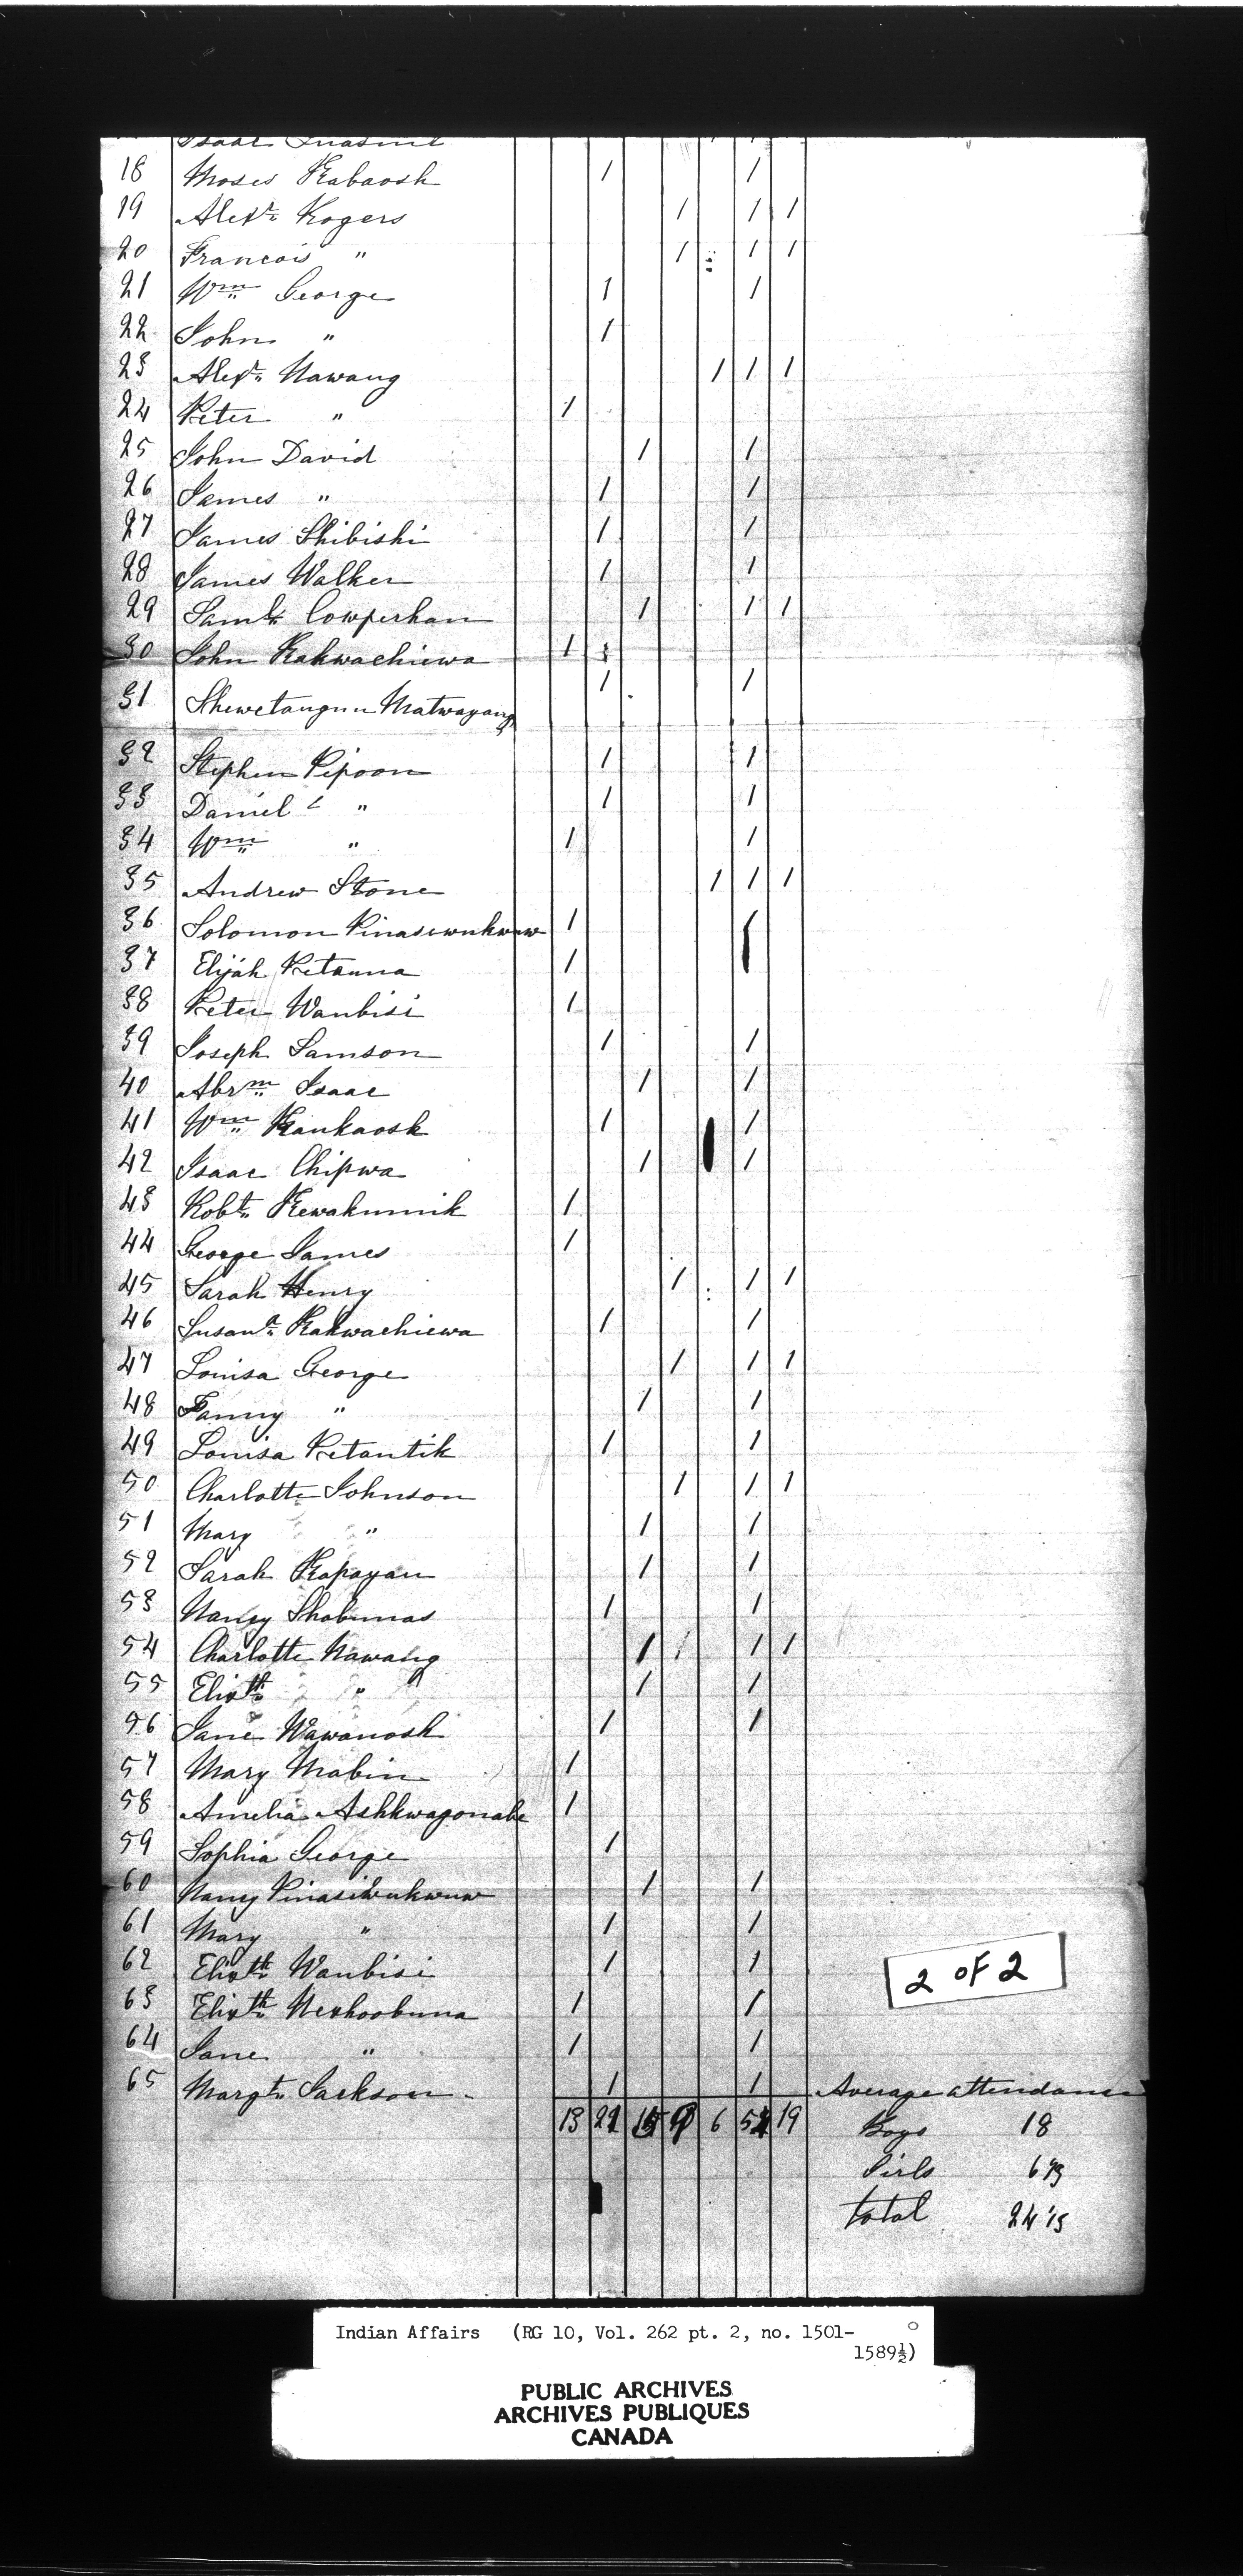 Isaac
18 Moses Kabaosh 1 1
19 Alexr. Rogers 1 1 1
20 Francois " 1 1 1
21 Wm. George 1 1
22 John " 1
23 Alexr. Nawang 1 1 1
24 Peter " 1
25 John David 1 1
26 James " 1 1
27 James Shibishi 1 1
28 James Walker 1 1
29 Saml. Cowperhan 1 1 1
30 John Kakwachiewa 1
31 Shewetangun Matwayang 1 1
32 Stephen Pipoon 1 1
33 Daniel " 1 1
34 Wm. " 1 1
35 Andrew Stone 1 1 1
36 Solomon Pinasewukwuw 1 1
37 Elijah Petauna 1
38 Peter Wanbisi 1
39 Joseph Samson 1 1
40 Abrm. Isaac 1 1
41 Wm. Kaukaosh 1 1
42 Isaac Chipwa 1 1
43 Robt. Kewakumik 1
44 George James 1
45 Sarah Henry 1 1 1
46 Susana. Kakwachiewa 1 1
47 Louisa George 1 1 1
48 Fanny " 1 1
49 Louisa Petantik 1 1
50 Charlotte Johnson 1 1 1
51 Mary " 1 1
52 Sarah Kapayan 1 1
53 Nancy Shobunas 1 1
54 Charlotte Nawang 1 1 1 1
55 Elizth. " 1 1
56 Jane Wawanosh 1 1
57 Mary Mabin 1
58 Amelia Ashkwagonabe 1
59 Sophia George 1
60 Nancy Pinasiwukwuw 1 1
61 Mary " 1 1
62 Elizth. Wanbisi 1 1
63 Elizth. Neshoobuna 1 1
64 Jane " 1 1
65 Margt. Jackson 1 1 Average attendance
13 21 15 9 6 52 19 Boys 18
Girls 6
total 24
2 OF 2
Indian Affairs (RG 10, Vol. 262 pt. 2, no. 1501-
1589½)
PUBLIC ARCHIVES
ARCHIVES PUBLIQUES
CANADA